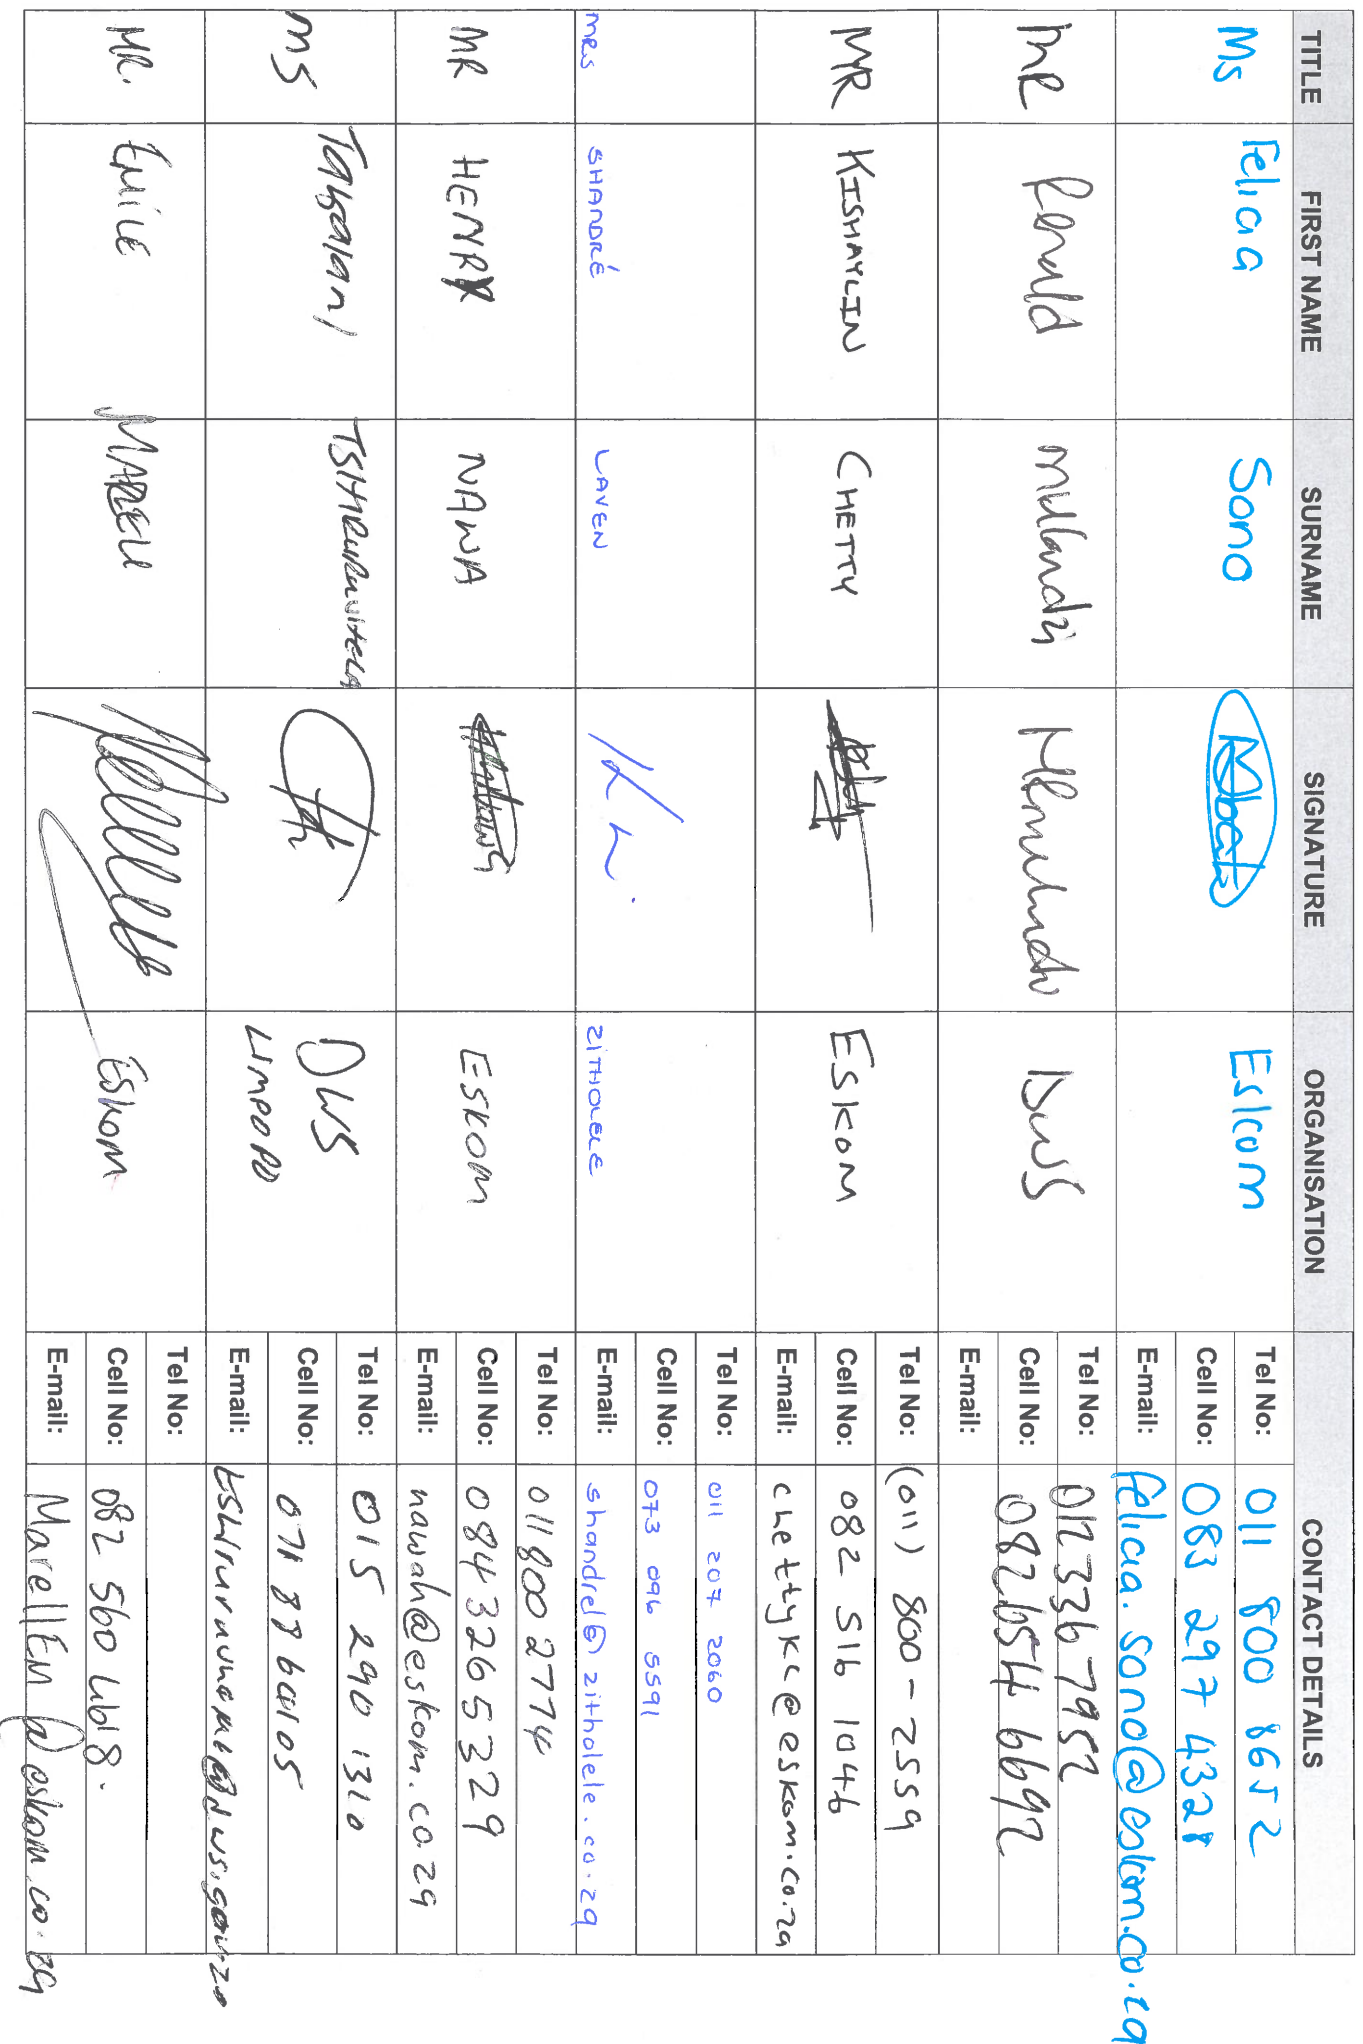 TITLE FIRST NAME SURNAME SIGNATURE ORGANISATION CONTACT DETAILS
Ms Feliaa Sono Eskom Tel No: 011 800 8652
Cell No: 083 297 4321
E-mail: feliaa.sono@eskom.co.za
MR Ronald DWS Tel No: 012 336 7952
Cell No: 082 654 6692
E-mail:
MR KISHAYLIN CHETTY ESKOM Tel No: (011) 800-2559
Cell No: 082 516 1046
E-mail: chettykc@eskom.co.za
MRS SHANDRÉ LAVEN ZITHOLELE Tel No: 011 207 2060
Cell No: 073 096 5591
E-mail: shandrel@zitholele.co.za
MR HENRY NAWA ESKOM Tel No: 011 800 2774
Cell No: 084 326 5329
E-mail: nawah@eskom.co.za
MS DWS Tel No: 015 290 1310
LIMPOPO Cell No:
E-mail:
MR. EMILE MARELL Eskom Tel No:
Cell No: 082 560 4618.
E-mail: MarellEm@eskom.co.za